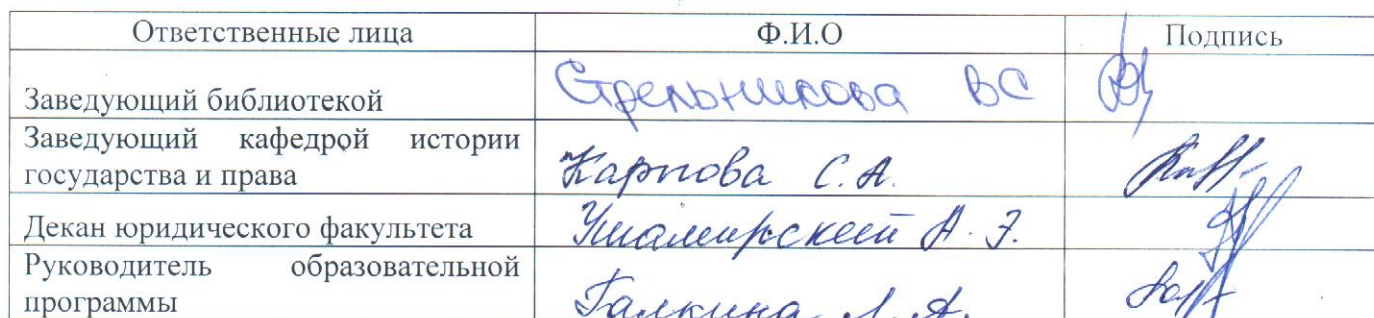 Ответственные лица Ф.И.О Подпись
Заведующий библиотекой Стрельникова ВС
Заведующий кафедрой истории
государства и права Карпова С.А.
Декан юридического факультета Ушамирский А.Э.
Руководитель образовательной
программы Галкина Л.А.